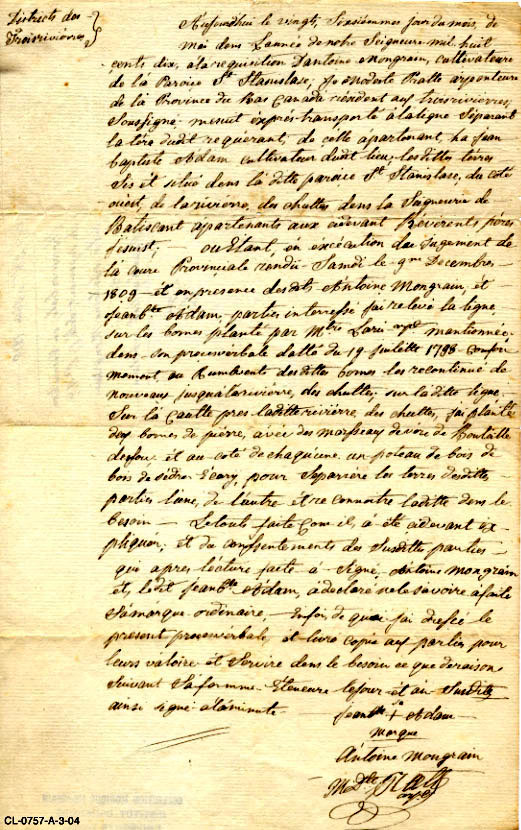 Districts des
Troirivières
Aujourdhui le vingt, Sixsiemmes jour du mois, de
mai dens L'année de notre Seigneure mil huit
cents dix, ala requisition Dantoine Mongrain, cultivateure
de la Paroice St Stanislase, Je Moderte Pratte arpenteure
de la Province du bas Canada résident aux troisrivierres,
Soussigné mesuit exprés transporté à la ligne Séparant
la tére dudit requerant, de celle apartenant, ha Jean
Baptiste Adam cultivateur dudit lieu, les dittes terres
Sis et situé dens la ditte paroice St Stanislace, du coté
ouest, de la rivierre, des chuttes dens la Seigneurie de
Batiscant apartenants aux cidevant Révérents péres
Jesuist. — ou Etant, en execution du Jugement de
la coure Provinciale rendue Samedi le 9me Decembres
1809 — et en presence desdits Antoine Mongrain, et
Jeanbte Adam, parties interressé jai relevé la ligne,
sur les bornes planté par Mtre Larue arpt mantionnée,
dens son procéverbale datté du 19 Juilette 1788 confor
mement, au Rumbvent desdittes bornes les recontinué de
nouveaux jusqua la rivierre, des chuttes, sur laditte ligne.
Sur la cautte pres laditte rivierre, des chuttes, jai planté
deux bornes de pierre, avec des marsseaux de voire de Boutaille
desou, et au coté de chaquieune un poteau de bois de
bois de sédre Ecary, pour Séparrére les terres desdittes
parties lune, de l'autre et reconnoitre laditte dens le
besoin — Letoute faite come il, à été cidevant Ex
pliquér, et du conssentements des Susditte parties —
qui apres lecture faite à Signé, Antoine Mongrain
et, ledit Jeanbte Adam, à declaré nele savoire à faite
Sa marque ordinaire, — Enfoi de quoi jai dressé le
present procéverbale, et livré copie aux partis pour
leurs valoire et Servire dens le besoin ce que de raison
Suivant Sa formme — Et teneure le jour et an Susditte
ainsi Signé a la minute —
Jeanbte + Adam
Sa
marque
Antoine Mongrain
Mdte Pratt
arptr
CL-0757-A-3-04